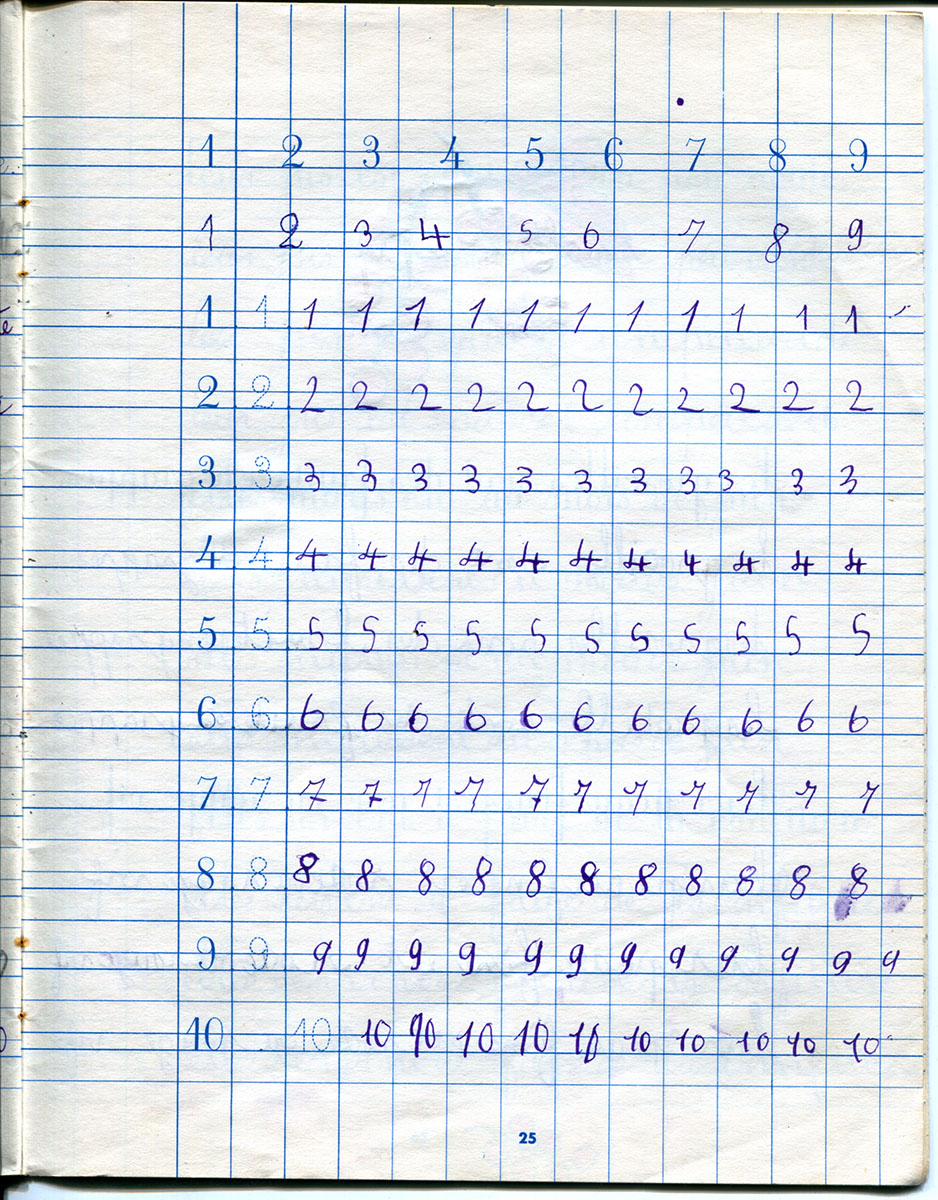 1 2 3 4 5 6 7 8 9
1 2 3 4 5 6 7 8 9
1 1 1 1 1 1 1 1 1 1 1 1 1
2 2 2 2 2 2 2 2 2 2 2 2 2
3 3 3 3 3 3 3 3 3 3 3 3 3
4 4 4 4 4 4 4 4 4 4 4 4 4
5 5 5 5 5 5 5 5 5 5 5 5 5
6 6 6 6 6 6 6 6 6 6 6 6 6
7 7 7 7 7 7 7 7 7 7 7 7 7
8 8 8 8 8 8 8 8 8 8 8 8 8
9 9 9 9 9 9 9 9 9 9 9 9 9 9
10 10 10 10 10 10 10 10 10 10 10 10
25